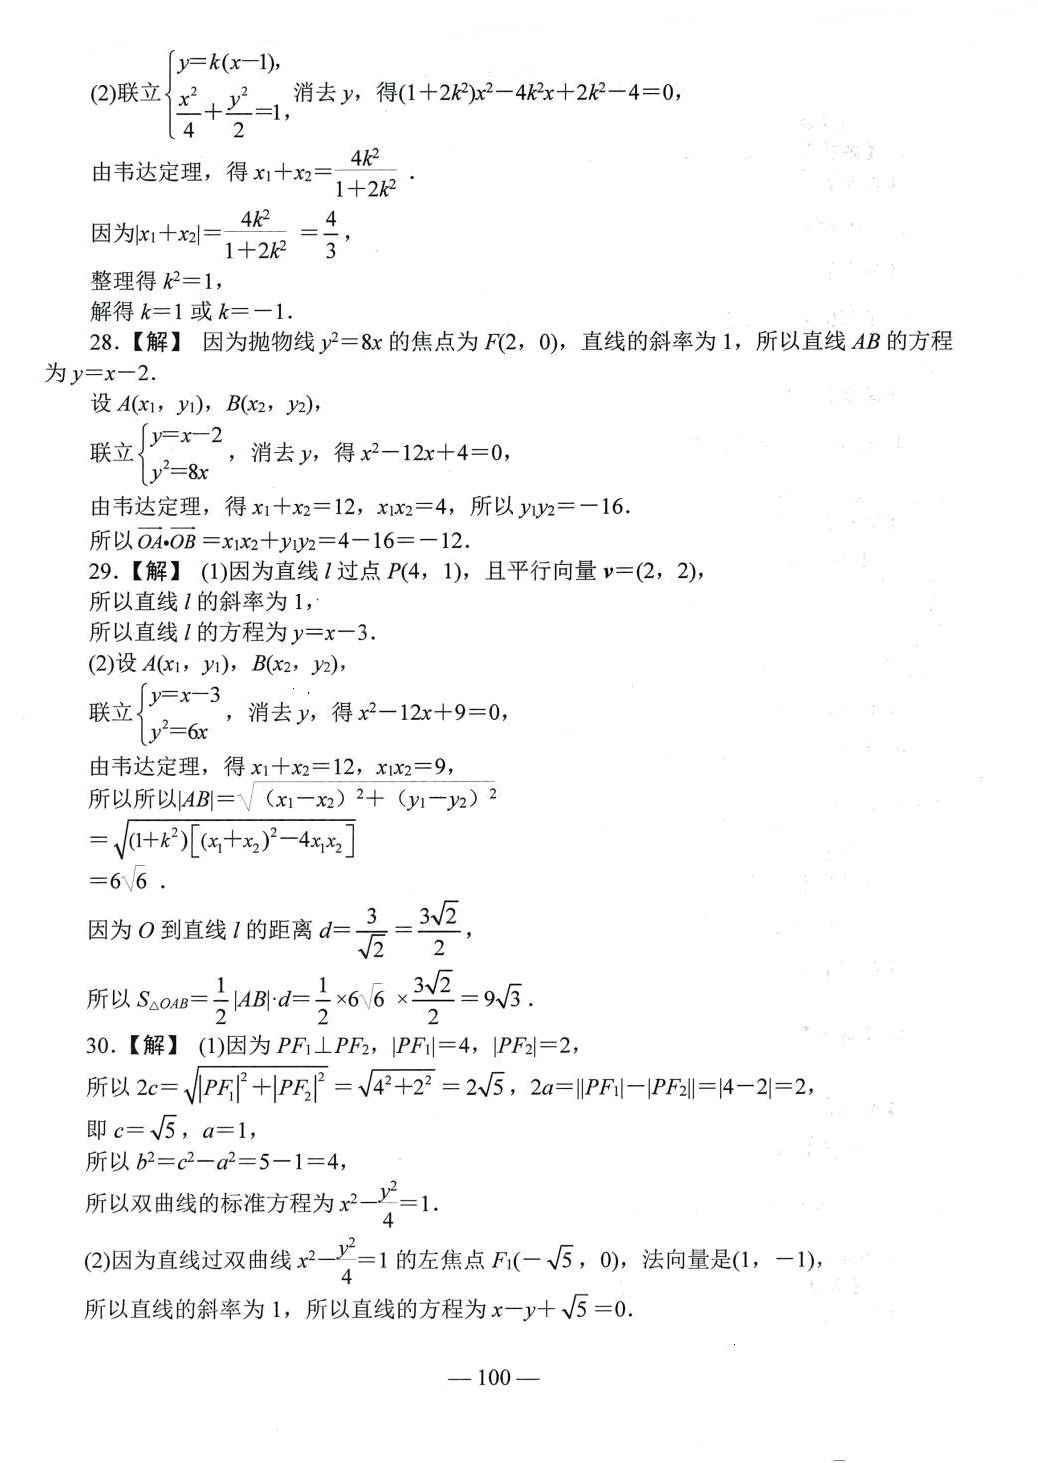 (2)联立{y=k(x-1), x²/4+y²/2=1, 消去 y，得(1+2k²)x²-4k²x+2k²-4=0，
由韦达定理，得 x₁+x₂=4k²/(1+2k²)．
因为|x₁+x₂|=4k²/(1+2k²)=4/3，
整理得 k²=1，
解得 k=1 或 k=-1．
28．【解】 因为抛物线 y²=8x 的焦点为 F(2，0)，直线的斜率为 1，所以直线 AB 的方程
为 y=x-2．
设 A(x₁，y₁)，B(x₂，y₂)，
联立{y=x-2 y²=8x，消去 y，得 x²-12x+4=0，
由韦达定理，得 x₁+x₂=12，x₁x₂=4，所以 y₁y₂=-16．
所以 OA→•OB→=x₁x₂+y₁y₂=4-16=-12．
29．【解】 (1)因为直线 l 过点 P(4，1)，且平行向量 v=(2，2)，
所以直线 l 的斜率为 1，
所以直线 l 的方程为 y=x-3．
(2)设 A(x₁，y₁)，B(x₂，y₂)，
联立{y=x-3 y²=6x，消去 y，得 x²-12x+9=0，
由韦达定理，得 x₁+x₂=12，x₁x₂=9，
所以所以|AB|=√（x₁-x₂）²+（y₁-y₂）²
=√(1+k²)[(x₁+x₂)²-4x₁x₂]
=6√6．
因为 O 到直线 l 的距离 d=3/√2=3√2/2，
所以 S△OAB=1/2|AB|·d=1/2×6√6×3√2/2=9√3．
30．【解】 (1)因为 PF₁⊥PF₂，|PF₁|=4，|PF₂|=2，
所以 2c=√|PF₁|²+|PF₂|²=√4²+2²=2√5，2a=||PF₁|-|PF₂||=|4-2|=2，
即 c=√5，a=1，
所以 b²=c²-a²=5-1=4，
所以双曲线的标准方程为 x²-y²/4=1．
(2)因为直线过双曲线 x²-y²/4=1 的左焦点 F₁(-√5，0)，法向量是(1，-1)，
所以直线的斜率为 1，所以直线的方程为 x-y+√5=0．
— 100 —